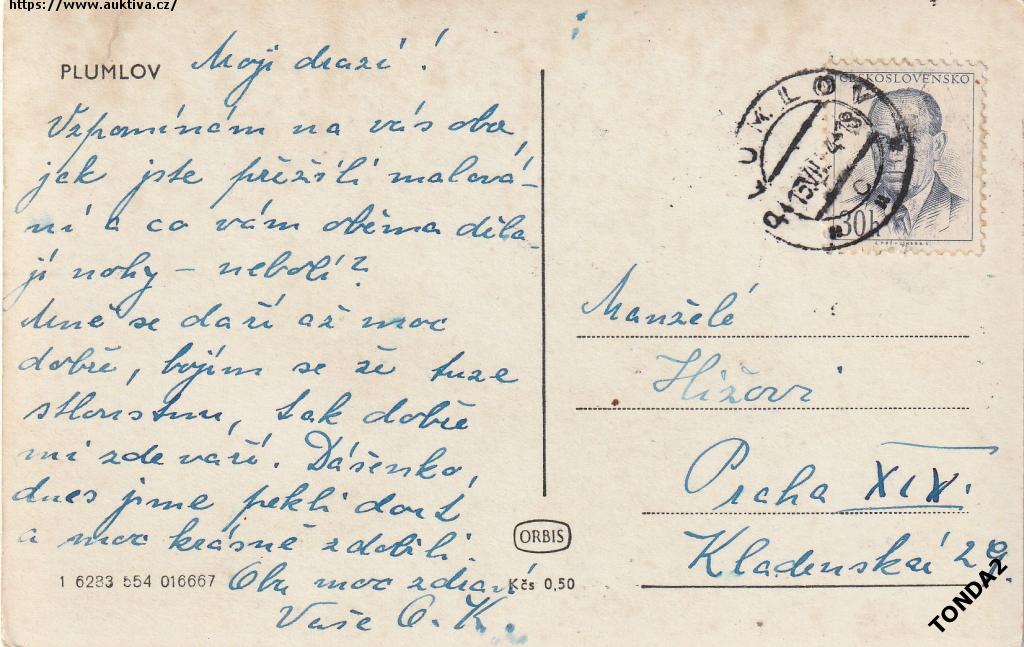 https://www.auktiva.cz/
PLUMLOV
Moji drazí!
Vzpomínám na vás oba,
jak jste přežili malová-
ní a co vám oběma děla-
jí nohy – nebolí?
Mně se daří až moc
dobře, bojím se že tuze
stloustnu, tak dobře
mi zde vaří. Dášenko,
dnes jsme pekli dort
a moc krásně zdobili.
Oba moc zdraví
Vaše O. K.
1 6283 554 016667
Kčs 0,50
ORBIS
PLUMLOV
ČESKOSLOVENSKO
30h
Manželé
Hížovi
Praha XIX.
Kladenská
TONDA2